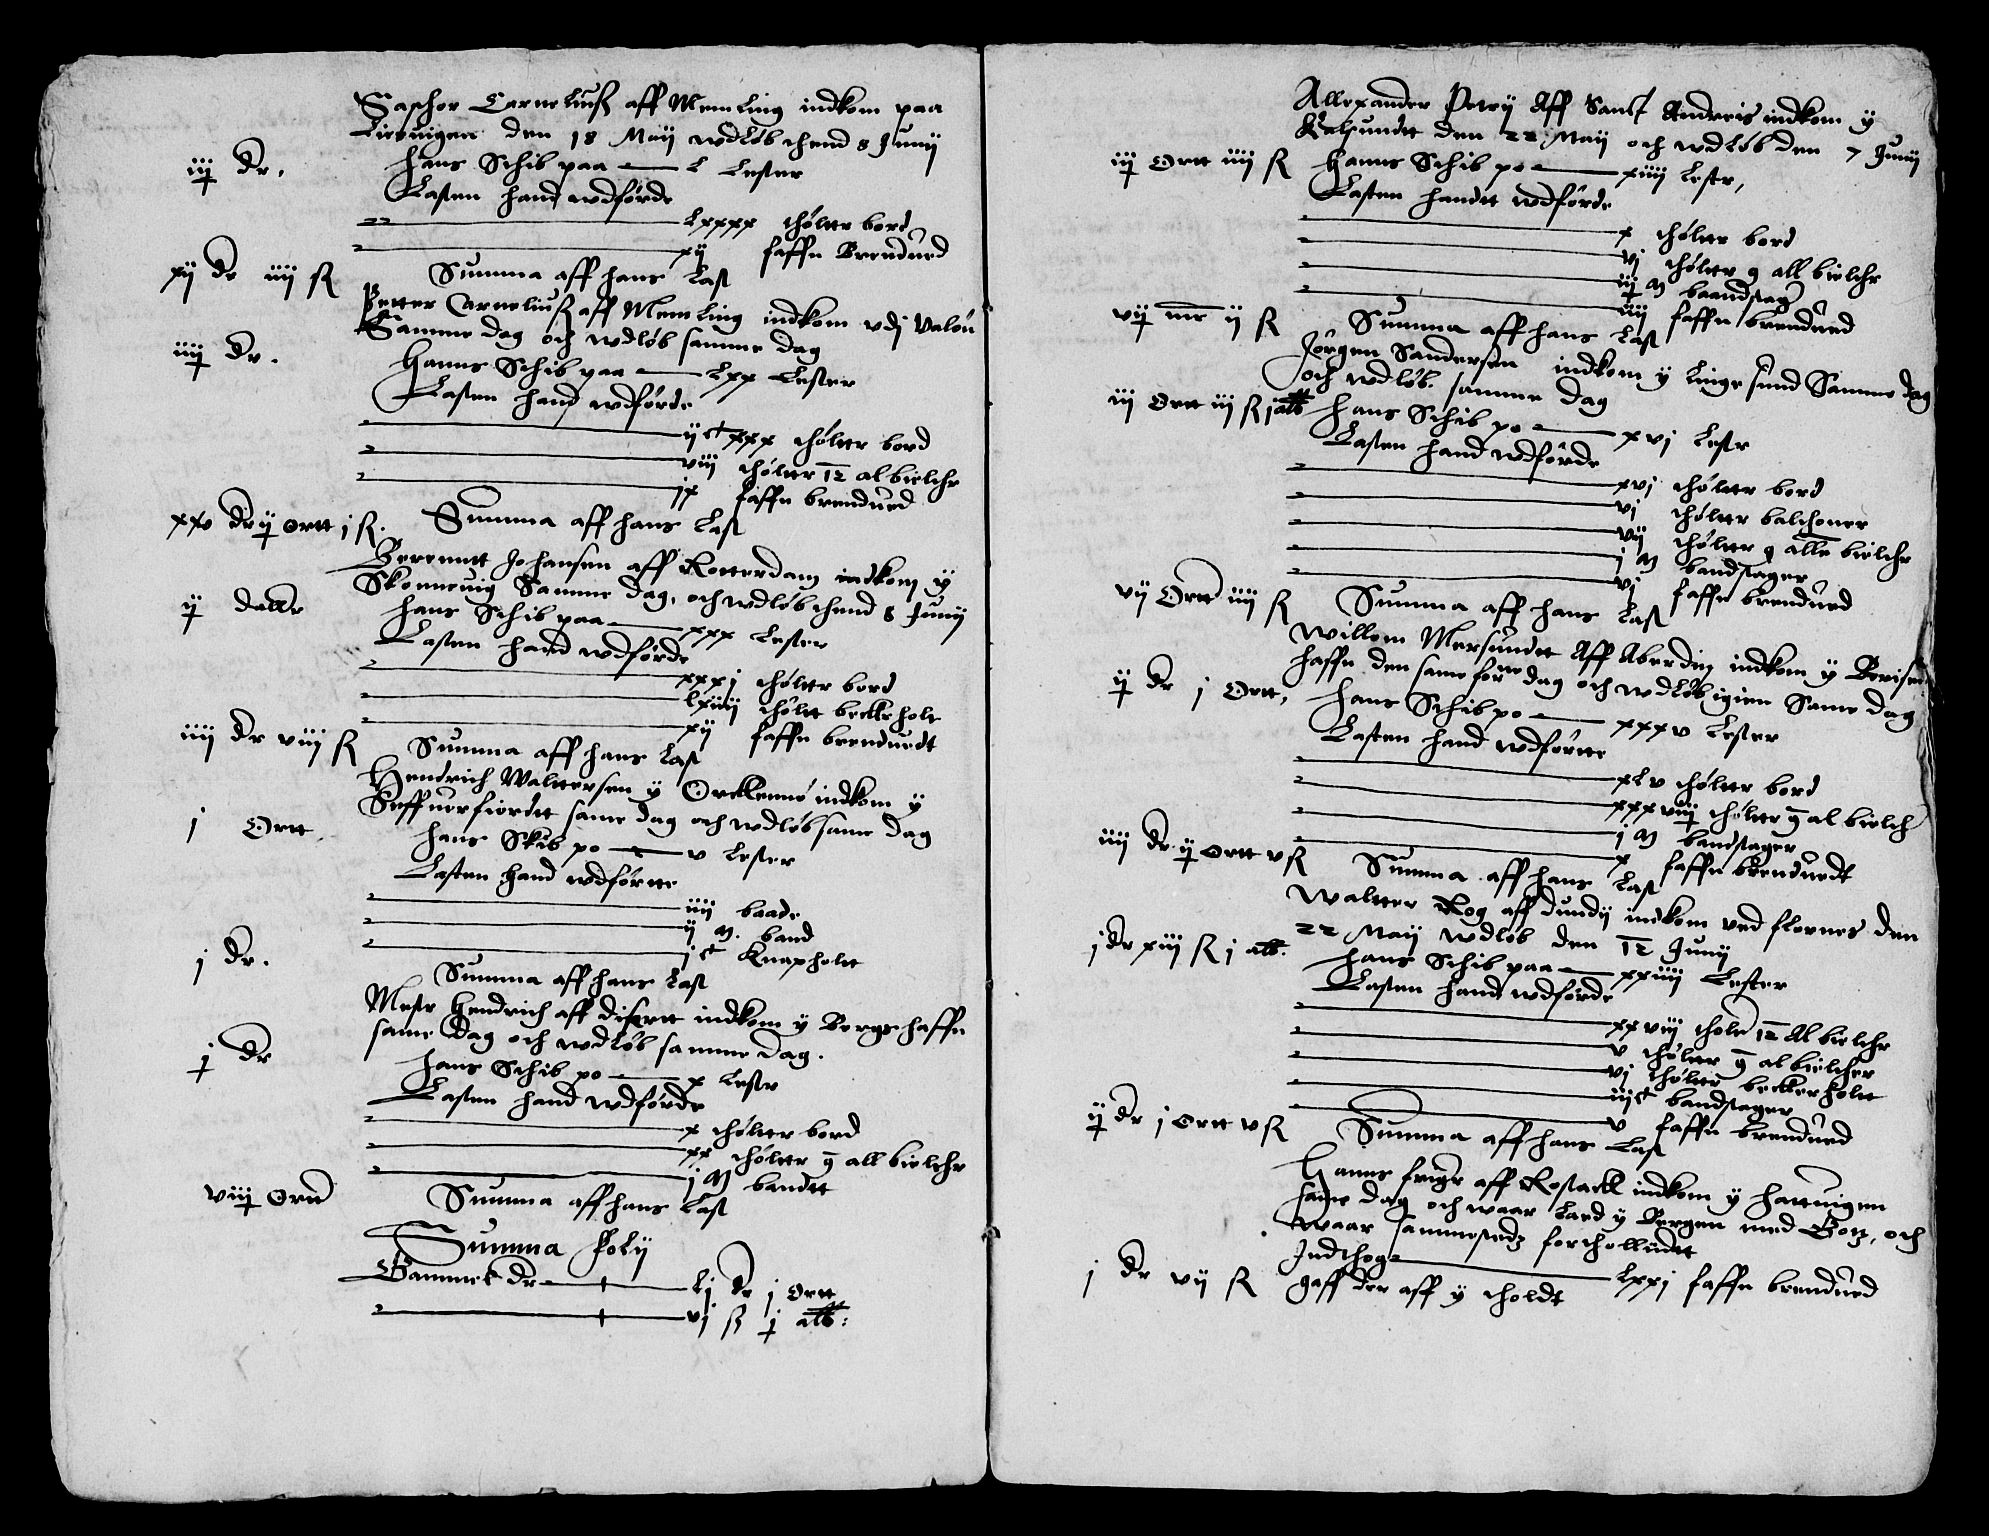 Saschor Carneliuß aff Memling indkom paa
Lieruigen den 18 Maij wdløb thend 8 Junij
iij½ dr. Hans Schib paa — L Lester
Lasten hand wdførde
— Lxxxx thólter bord
— xij faffn Brendued
xij dr iiij ß Summa aff hans Last
Petter Carneliuß aff Memling indkom vdj Valóu
Samme dag och wdløb samme dag
iiij½ dr. Hanns Schib paa — Lxx Lester
Lasten hand wdførde
— ij ct xxx thólter bord
— viij thólter 12 al bielchr
— ix faffn brendued
xxv dr ij½ ortt j ß. Summa aff hans Last
Berenntt Johansen aff Rotterdam indkom ij
Skonneuig Samme dag, och wdløb thend 8 Junij
ij dallr Hans Schib paa — xxx Lester
Lasten hand wdførde
— xxxj thólter bord
— Lxiiij thólt beckeholt
— xij faffn brenduedt
iiij dr viij ß Summa aff hans Last
Hendrich Waltersen ij Orckennó indkom ij
Seffuerfiordt same dag och wdløb same dag
j Ortt. Hans Skib po — v Lester
Lasten hand wdførtte
— iiij baade
— ij m. band
— j ct Knapholt
j dr. Summa aff hans Last
Mester Hendrich aff disertt indkom ij Bergehaffn
same dag och wdløb samme dag.
½ dr Hans Schib po — x Lester
Lasten hand wdførde
— x thólter bord
— xx thólter 9 all bielchr
— j m bandtt
viij½ ortt Summa aff hans Last
Summa Folij
Gammel dr — Lj dr j ortt
— vj ß ½ alb:
Allexander Petrij Aff Sanct Andreis indkom ij
Kalsundtt den 22 Maij och wdløb den 7 Junij
iij½ Ortt iiij ß Hanns Schib po — xiiij Lester,
Lasten handtt wdførde
— x thólter bord
— vj thólter 9 all bielchr
— ij½ m baandstager
— iiij faffn brendued
vij½ mr ij ß Summa aff hans Last
Jørgen Sandersøn indkom ij Lingesund Samme dag
och wdløb. samme dag
iij Ortt iij ß j alb Hans Schib po — xvj Lester
Lasten hand wdførde
— xvj thólter bord
— vj thólter balchoner
— vij thólter 9 alle bielchr
— j m bandstager
— vj faffn brendued
vij Ortt iiij ß Summa aff hans Last
Willom Mersundtt Aff Aberdin indkom ij Breiser
haffn den same forne dag och wdløb igien Same dag
ij½ dr j Ortt, Hans Schib po — xxxv Lester
Lasten hand wdførtte
— xLv thólter bord
— xxxviij½ thólter 9 al bielch
— j m bandstager
— x faffn brenduedt
iiij dr ij½ ortt v ß Summa aff hans Last
Waltter Rog aff dundij indkom ved flornes den
22 Maij wdløb den 12 Junij
j dr xiij ß j alb. Hans Schib paa — xxiiij Lester
Lasten hand wdførde
— xxviij tholt 12 Al bielchr
— v thólter 9 al bielcher
— vj thólter beckerholtt
— iij ct bandstager
— v faffn brendued
ij½ dr j ortt v ß Summa aff hans Last
Hanns frigr aff Rostackl indkom ij hattuigen
same dag och waar Laed ij Bergen med Gotz, och
waar sammestedz fortholludtt
Indthog — Lxxj faffn brendued
j dr vij ß gaff der aff ij tholdt